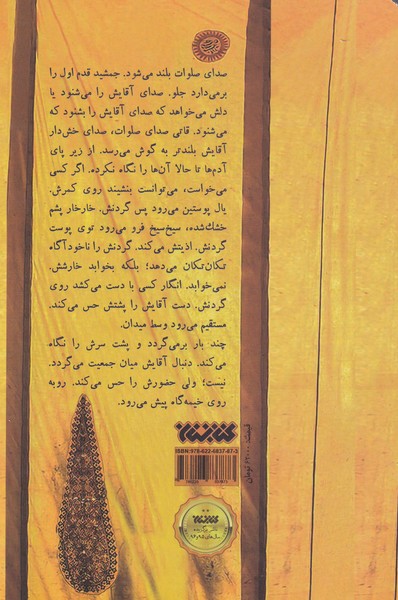 صدای صلوات بلند می‌شود. جمشید قدم اول را
برمی‌دارد جلو. صدای آقایش را می‌شنود یا
دلش می‌خواهد که صدای آقایش را بشنود که
می‌شنود. قاتی صدای صلوات، صدای خش‌دار
آقایش بلندتر به گوش می‌رسد. از زیر پای
آدم‌ها تا حالا آن‌ها را نگاه نکرده. اگر کسی
می‌خواست، می‌توانست بنشیند روی کمرش.
یال پوستین می‌رود پس گردنش. خارخار پشم
خشک‌شده، سیخ‌سیخ فرو می‌رود توی پوست
گردنش. اذیتش می‌کند. گردنش را ناخودآگاه
تکان‌تکان می‌دهد؛ بلکه بخوابد خارشش.
نمی‌خوابد. انگار کسی با دست می‌کشد روی
گردنش. دست آقایش را پشتش حس می‌کند.
مستقیم می‌رود وسط میدان.
چند بار برمی‌گردد و پشت سرش را نگاه
می‌کند. دنبال آقایش میان جمعیت می‌گردد.
نیست؛ ولی حضورش را حس می‌کند. روبه
روی خیمه‌گاه پیش می‌رود.
کتابستان
ISBN:978-622-6837-87-3
تومان
قیمت: